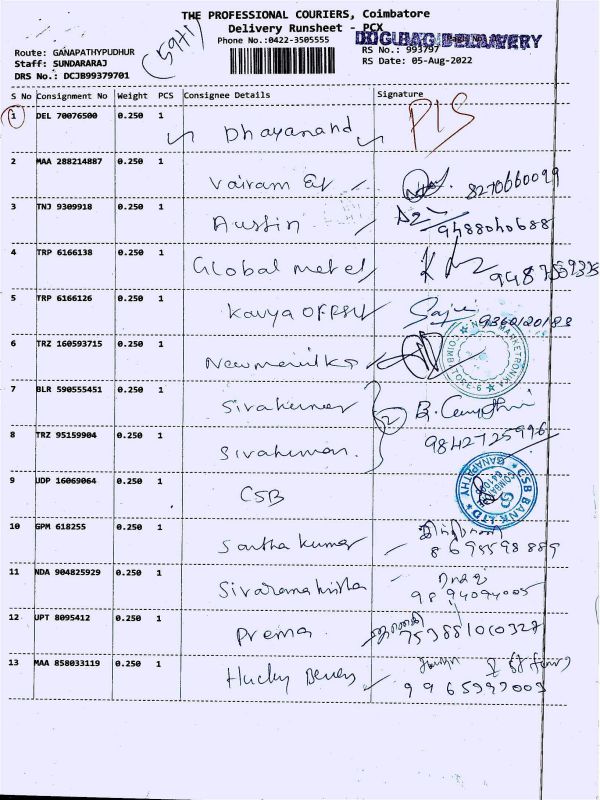 THE PROFESSIONAL COURIERS, Coimbatore
Delivery Runsheet - PCX
Phone No.:0422-3505555
RS No.: 993797
RS Date: 05-Aug-2022
Route: GANAPATHYPUDHUR
Staff: SUNDARARAJ
DRS No.: DCJB99379701
S No Consignment No Weight PCS Consignee Details Signature
1 DEL 70076500 0.250 1 Dhayanand
2 MAA 288214887 0.250 1 Vairam 8270660099
3 TNJ 9309918 0.250 1 Austin 9488040688
4 TRP 6166138 0.250 1 Global metel
5 TRP 6166126 0.250 1 Kavya Offset 9360120188
6 TRZ 160593715 0.250 1
7 BLR 590555451 0.250 1 Sivakumar
8 TRZ 95159904 0.250 1 Sivakumar 9842725996
9 UDP 16069064 0.250 1 CSB
CSB BANK LTD GANAPATHY
10 GPM 618255 0.250 1 Santha kumar
11 NDA 904825929 0.250 1 Sivaramakrishna
12 UPT 8095412 0.250 1 Prema
13 MAA 858033119 0.250 1